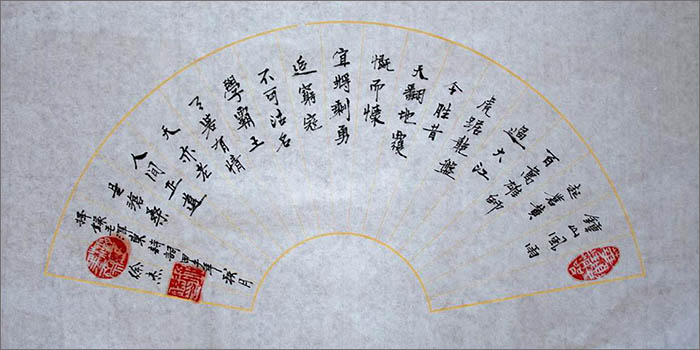 鐘山風雨
起蒼黄
百萬雄師
過大江
虎踞龍盤
今胜昔
天翻地覆
慨而慷
宜將剩勇
追窮寇
不可沽名
學霸王
天若有情
天亦老
人间正道
是滄桑
擇錄毛澤東詩詞甲午年秋月
徐杰